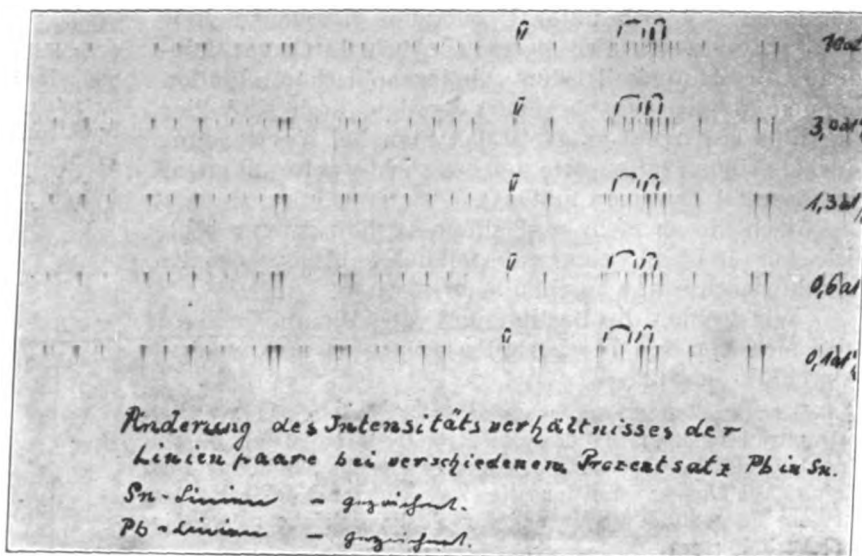 10at
3,0at%
1,3at%
0,6at
0,1at%
Änderung des Intensitätsverhältnisses der
Linienpaare bei verschiedenem Prozentsatz Pb in Sn.
Sn-Linien – gezeichnet.
Pb-Linien – gezeichnet.